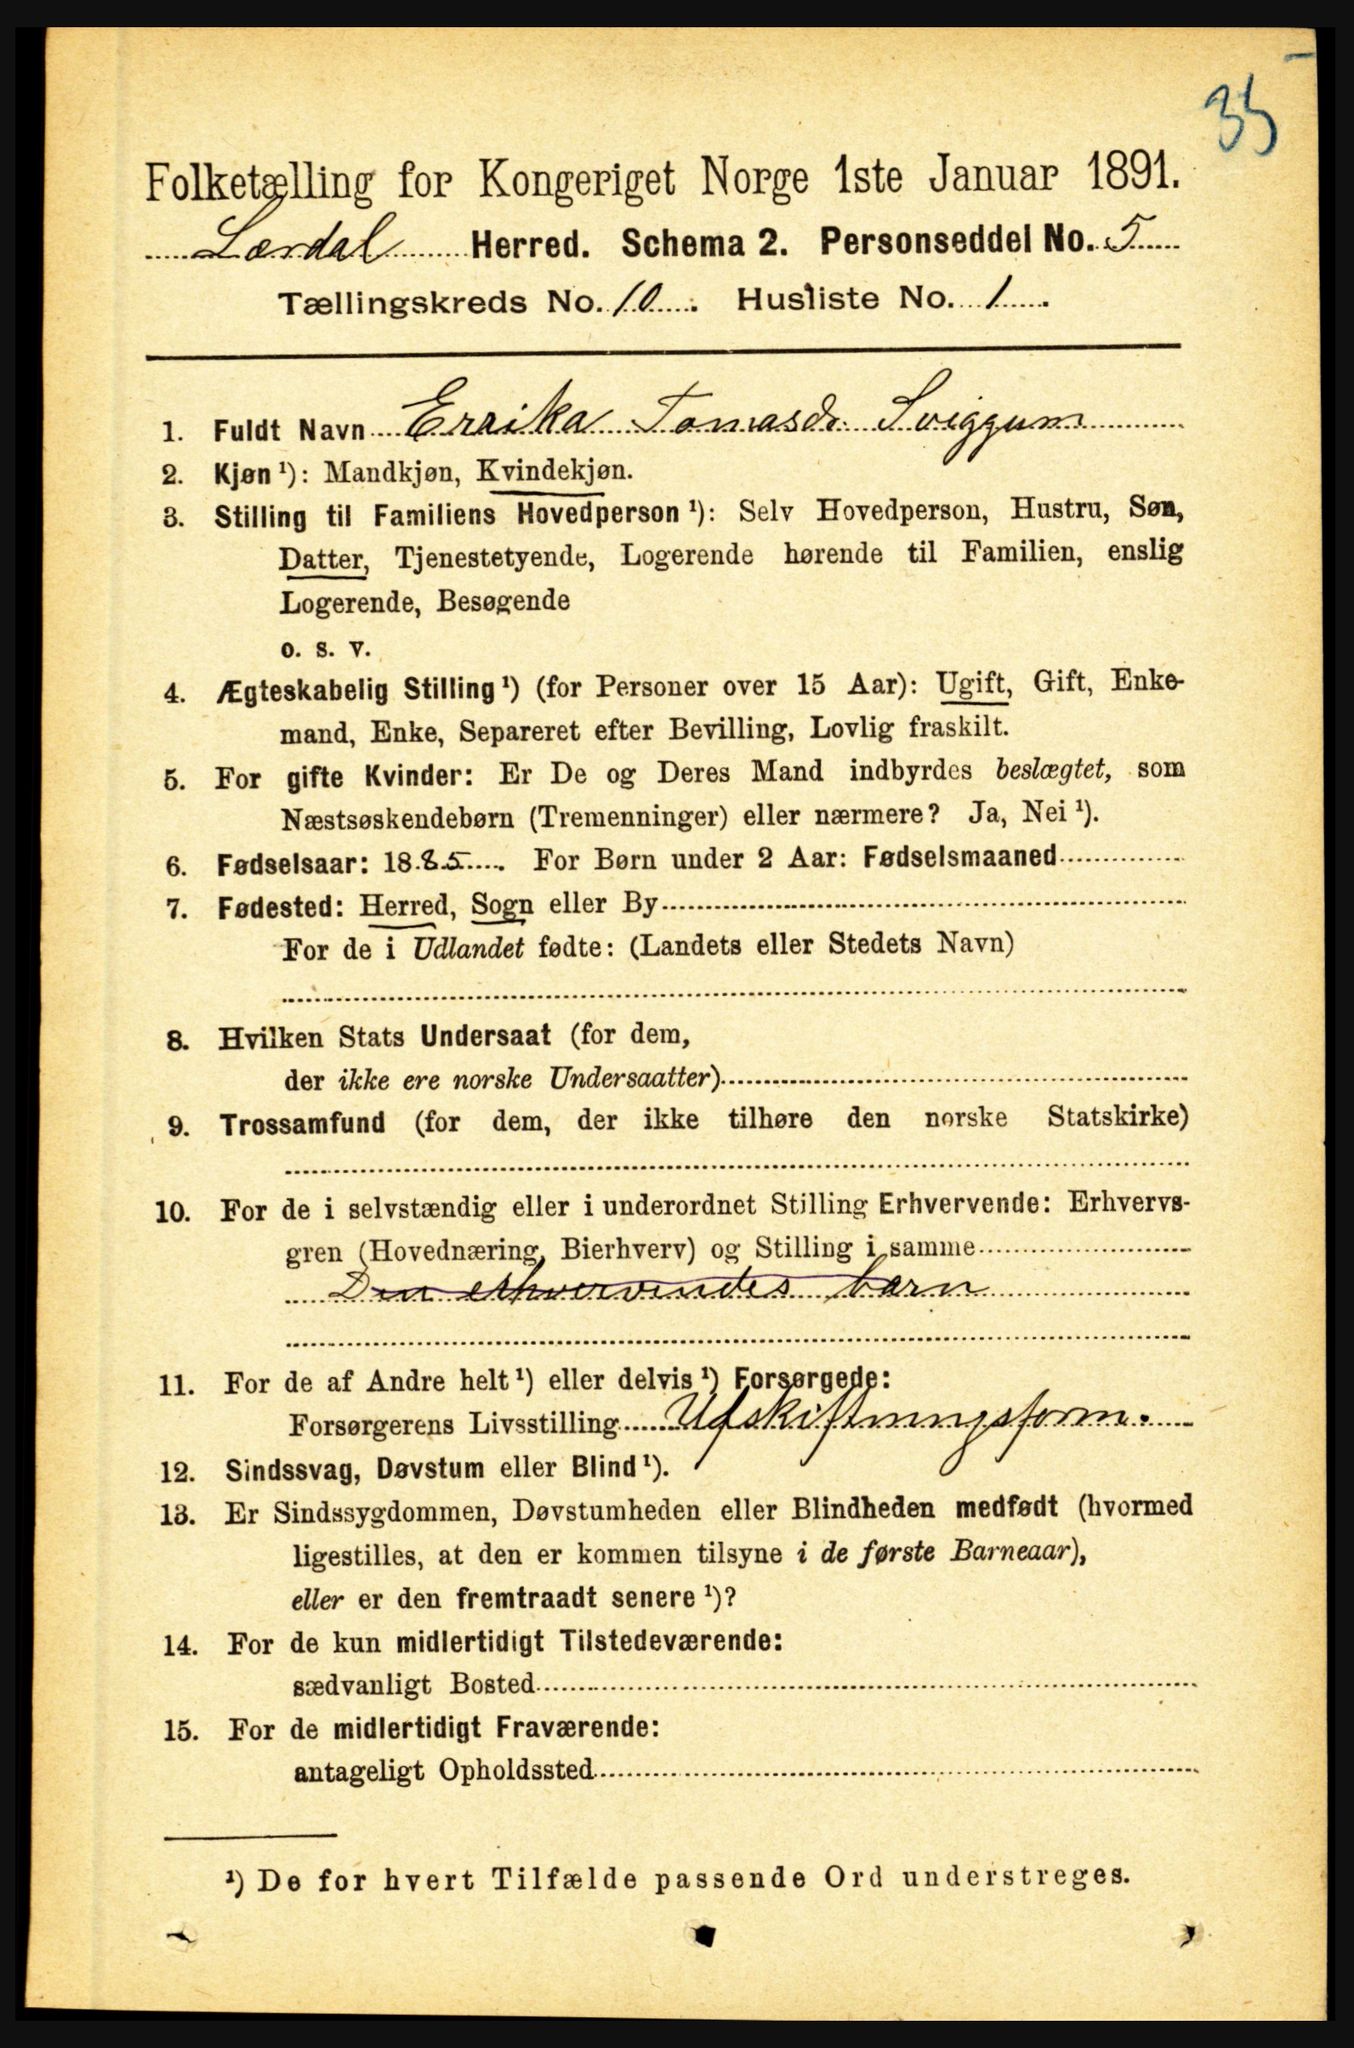 35
Folketælling for Kongeriget Norge 1ste Januar 1891.
Lærdal Herred. Schema 2. Personseddel No. 5
Tællingskreds No. 10. Husliste No. 1.
1. Fuldt Navn Errika Tomasdr. Sviggum
2. Kjøn ¹): Mandkjøn, Kvindekjøn.
3. Stilling til Familiens Hovedperson ¹): Selv Hovedperson, Hustru, Søn,
Datter, Tjenestetyende, Logerende hørende til Familien, enslig
Logerende, Besøgende
o. s. v.
4. Ægteskabelig Stilling ¹) (for Personer over 15 Aar): Ugift, Gift, Enke-
mand, Enke, Separeret efter Bevilling, Lovlig fraskilt.
5. For gifte Kvinder: Er De og Deres Mand indbyrdes beslægtet, som
Næstsøskendebørn (Tremenninger) eller nærmere? Ja, Nei ¹).
6. Fødselsaar: 1885. For Børn under 2 Aar: Fødselsmaaned
7. Fødested: Herred, Sogn eller By
For de i Udlandet fødte: (Landets eller Stedets Navn)
8. Hvilken Stats Undersaat (for dem,
der ikke ere norske Undersaatter)
9. Trossamfund (for dem, der ikke tilhøre den norske Statskirke)
10. For de i selvstændig eller i underordnet Stilling Erhvervende: Erhvervs-
gren (Hovednæring, Bierhverv) og Stilling i samme
Den erhvervendes barn
11. For de af Andre helt ¹) eller delvis ¹) Forsørgede:
Forsørgerens Livsstilling Udskiftningsform.
12. Sindssvag, Døvstum eller Blind ¹).
13. Er Sindssygdommen, Døvstumheden eller Blindheden medfødt (hvormed
ligestilles, at den er kommen tilsyne i de første Barneaar),
eller er den fremtraadt senere ¹)?
14. For de kun midlertidigt Tilstedeværende:
sædvanligt Bosted
15. For de midlertidigt Fraværende:
antageligt Opholdssted
¹) De for hvert Tilfælde passende Ord understreges.